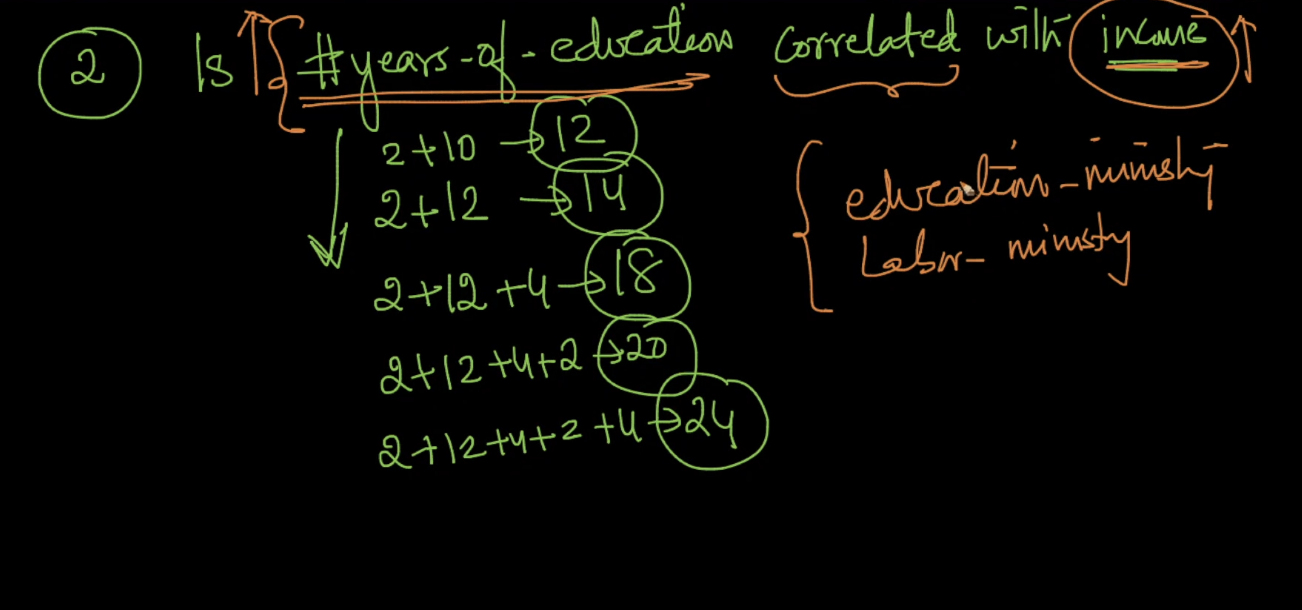 2 Is #years-of-education correlated with income
2+10 → 12
2+12 → 14
2+12+4 → 18
2+12+4+2 → 20
2+12+4+2+4 → 24
education-ministy
Labor-ministy